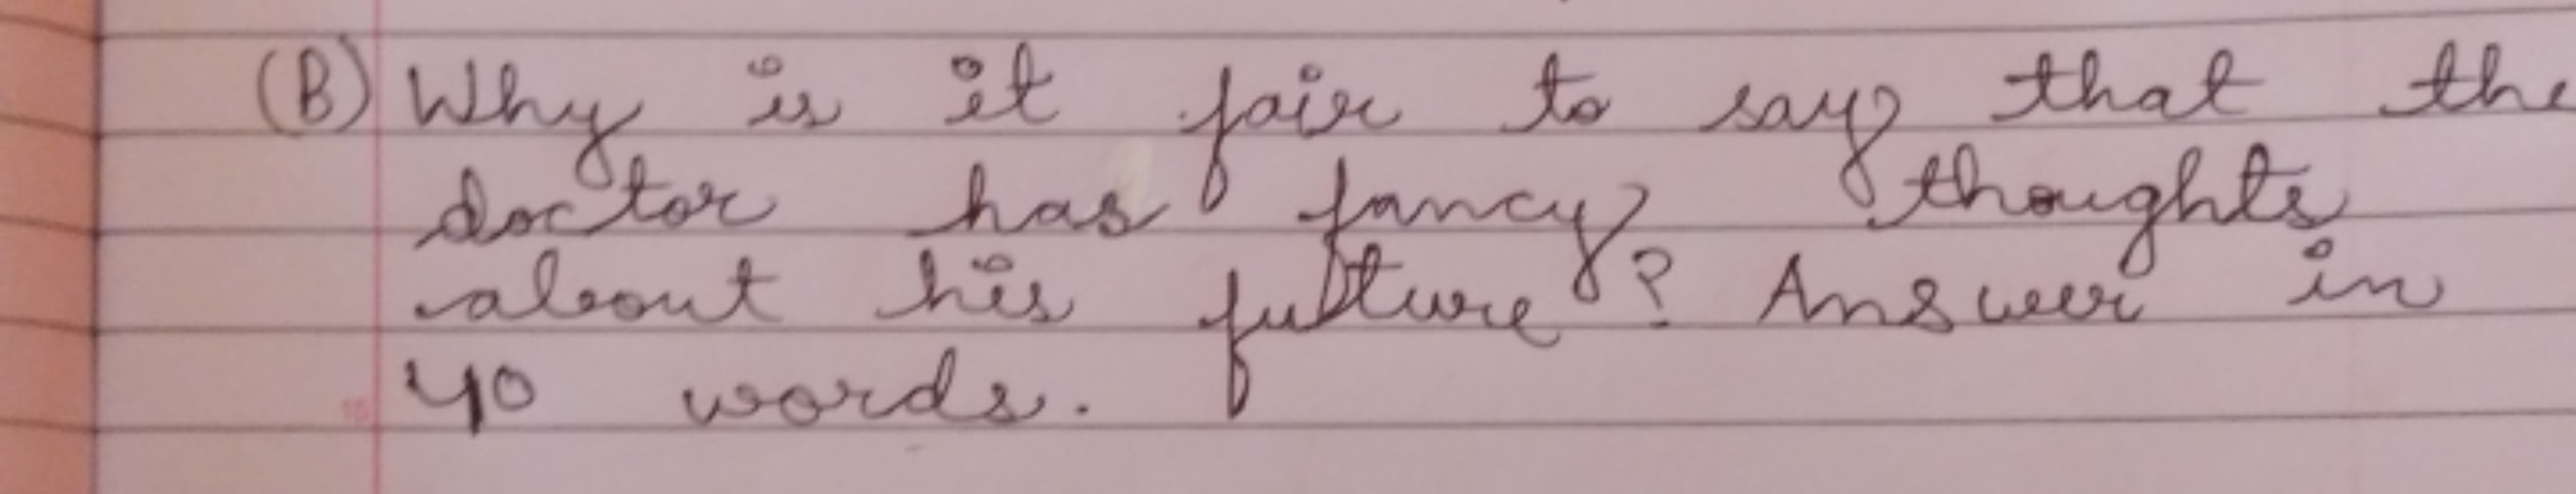 (B) Why is it fair to say that the
doctor has fancy thoughts
about his future? Answer in
40 words.